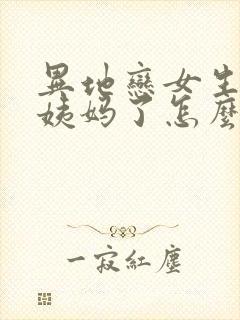 異地戀女生
姨媽了怎麼
一寂紅塵